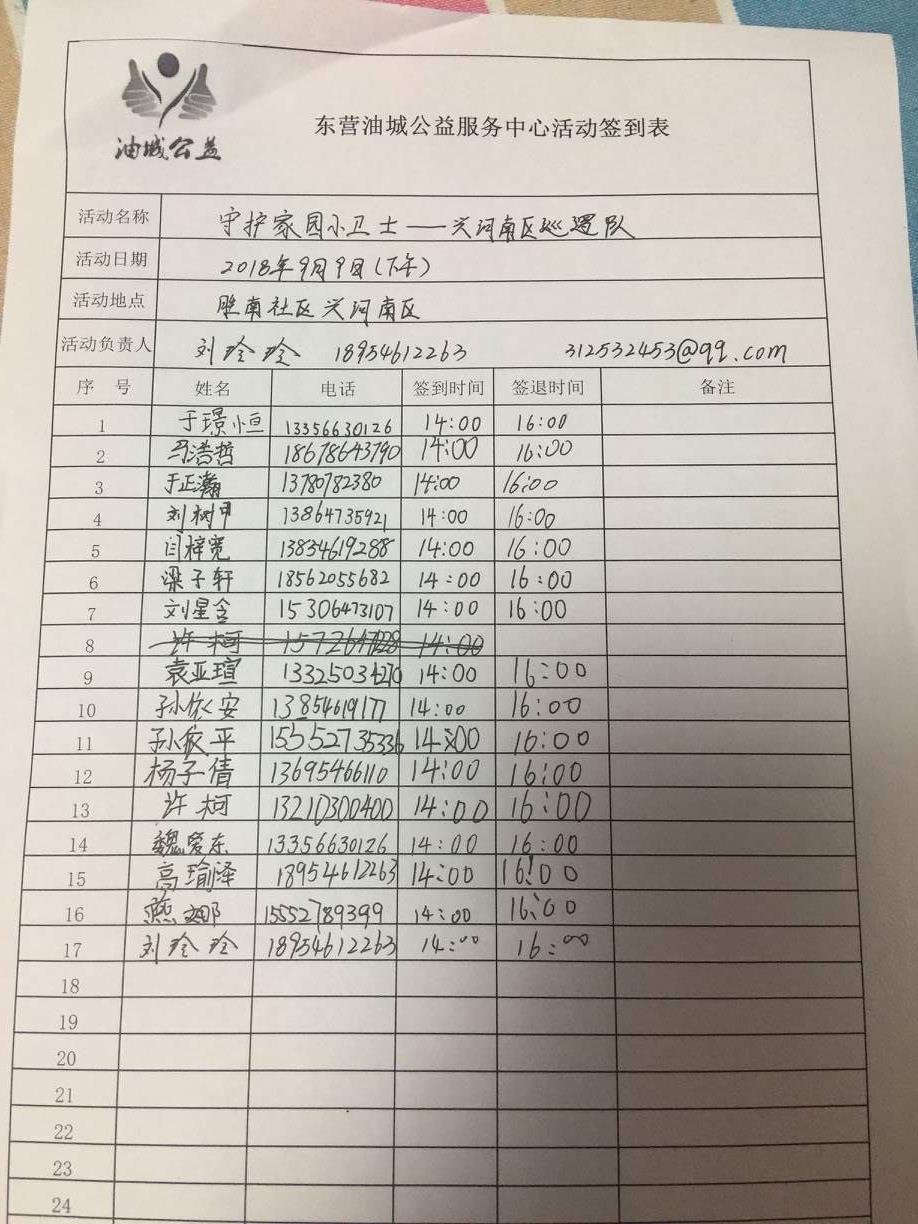 油城公益
东营油城公益服务中心活动签到表
活动名称 守护家园小卫士——兴河南区巡逻队
活动日期 2018年9月9日(下午)
活动地点 胜南社区兴河南区
活动负责人 刘玲玲 18954612263 312532453@qq.com
序 号 姓名 电话 签到时间 签退时间 备注
1 于璟恒 13356630126 14:00 16:00
2 马浩哲 18678643790 14:00 16:00
3 于正瀚 13780782380 14:00 16:00
4 刘树甲 13864735921 14:00 16:00
5 闫梓宽 13834619288 14:00 16:00
6 梁子轩 18562055682 14:00 16:00
7 刘星含 15306473107 14:00 16:00
8 许柯 14:00
9 袁亚瑄 13325034270 14:00 16:00
10 孙依安 13854619177 14:00 16:00
11 孙依平 15552735336 14:00 16:00
12 杨子倩 13695466110 14:00 16:00
13 许柯 13210300400 14:00 16:00
14 魏爱东 13356630126 14:00 16:00
15 高瑜泽 18954612263 14:00 16:00
16 15552789399 14:00 16:00
17 刘玲玲 18954612263 14:00 16:00
18
19
20
21
22
23
24